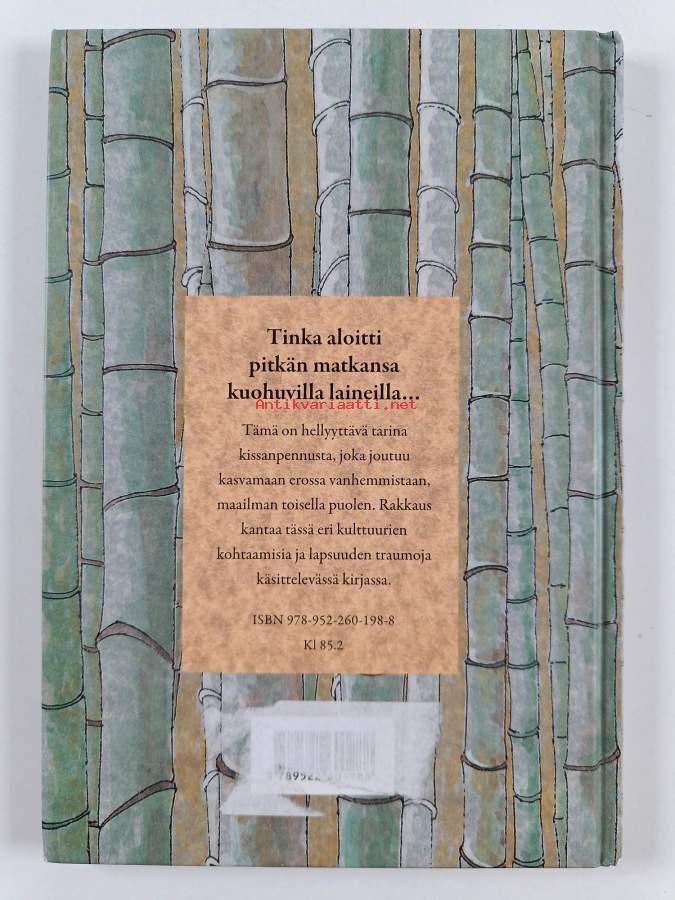 Tinka aloitti
pitkän matkansa
kuohuvilla laineilla...
Antikvariaatti.net
Tämä on hellyyttävä tarina
kissanpennusta, joka joutuu
kasvamaan erossa vanhemmistaan,
maailman toisella puolen. Rakkaus
kantaa tässä eri kulttuurien
kohtaamisia ja lapsuuden traumoja
käsittelevässä kirjassa.
ISBN 978-952-260-198-8
Kl 85.2